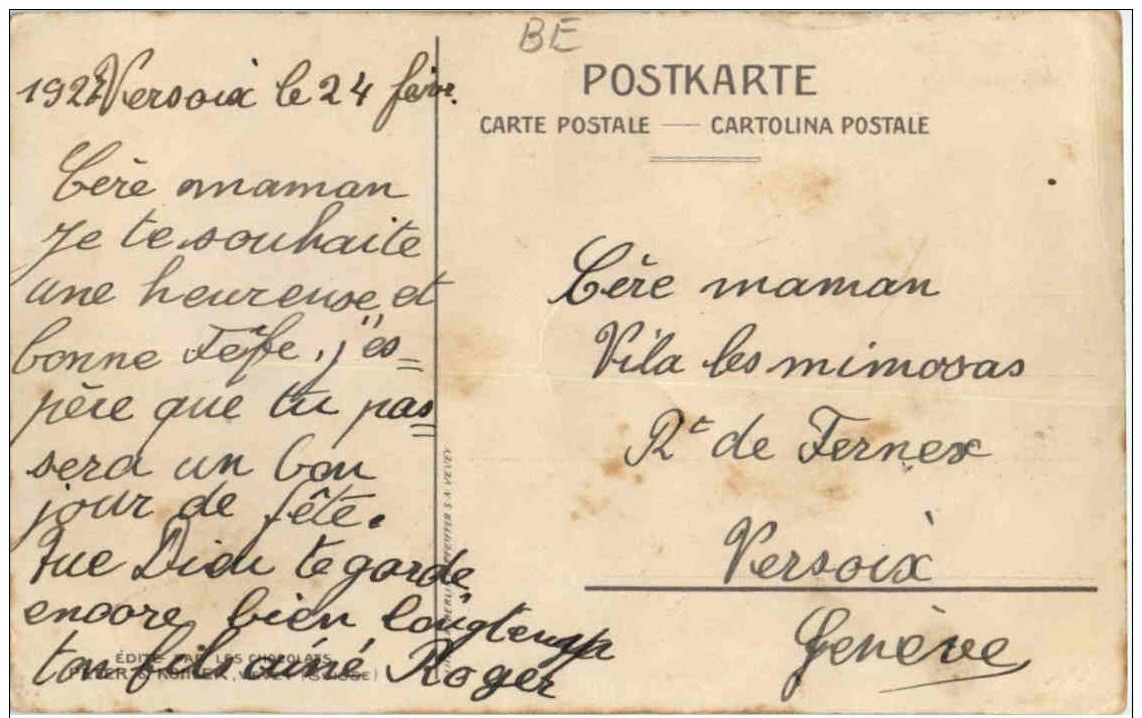 BE
POSTKARTE
CARTE POSTALE — CARTOLINA POSTALE
Versoix le 24 févr.
Cère maman
Je te souhaite
une heureuse et
bonne Fête, j'es=
père que tu pas=
sera un bon
jour de fête.
Que Dieu te garde
encore bien longtemps
ton fils aîné Roger
Cère maman
Vila les mimosas
Rt de Fernex
Versoix
Genève
S.A. VEVEY
ÉDITÉ PAR LES CHOCOLATS
KOHLER,